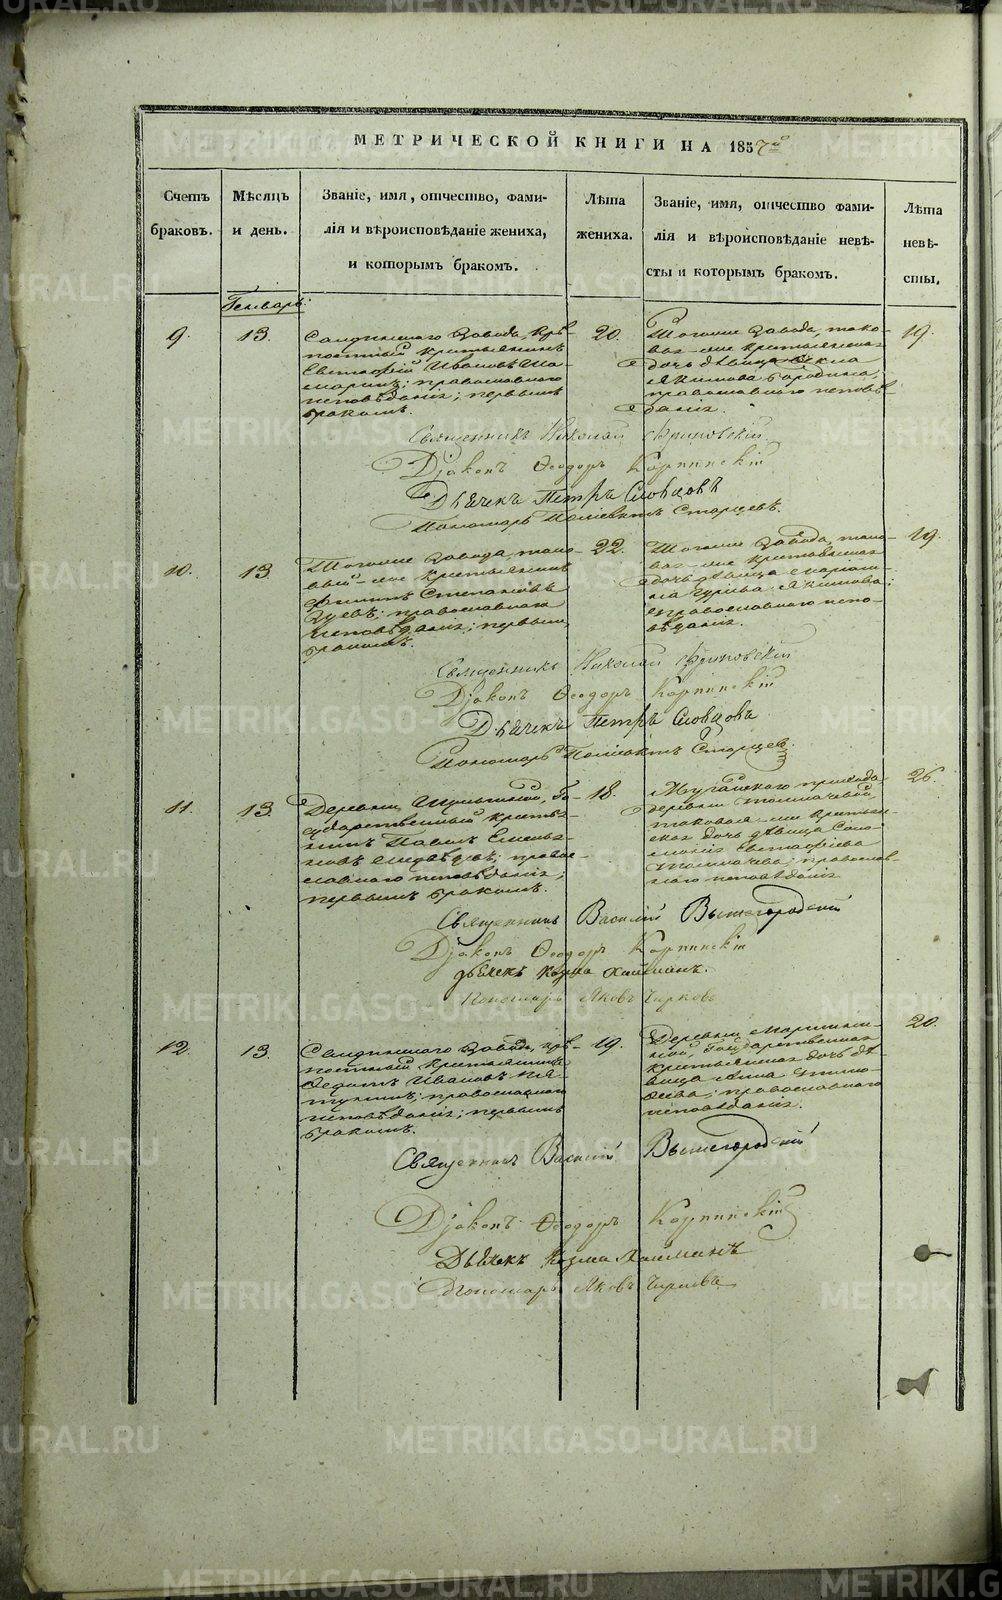 МЕТРИЧЕСКОЙ КНИГИ НА 1857го
Счетъ браковъ.
Мѣсяцъ и день.
Званіе, имя, отчество, фами-
лія и вѣроисповѣданіе жениха,
и которымъ бракомъ.
Лѣта жениха.
Званіе, имя, отчество фами-
лія и вѣроисповѣданіе невѣ-
сты и которымъ бракомъ.
Лѣта невѣ-
сты.
Генварь:
9.
13.
Салдинскаго завода, крѣ-
постный крестьянинъ
Евстафій Ивановъ
православнаго
исповѣданія; первымъ
бракомъ.
20.
Тогоже завода, тако-
ваго-же крестьянина
дочь дѣвица Ѳекла
Якимова Бородина,
православнаго исповѣ-
данія.
19.
Священникъ Николай
Діаконъ Ѳеодоръ Карпинскій
Дьячекъ Петръ Словцовъ
Пономарь Поліевктъ Старцевъ.
10.
13
Тогоже завода, тако-
вый-же крестьянинъ
Филипъ Степановъ
Зуевъ; православнаго
исповѣданія; первымъ
бракомъ.
22.
Тогоже завода, тако-
ваго-же крестьянина
дочь дѣвица
Якимова;
православнаго испо-
вѣданія.
19.
Священникъ Николай
Діаконъ Ѳеодоръ Карпинскій
Дьячекъ Петръ Словцовъ
Пономарь Поліевктъ Старцевъ.
11.
13
Деревни Го-
сударственный кресть-
янинъ Павелъ Емелья-
новъ Медвѣдевъ; право-
славнаго исповѣданія;
первымъ бракомъ.
18.
Мугайскаго прихода
деревни Толмачевой
таковаго-же крестья-
нина дочь дѣвица Соло-
монія Евстафіева
Толмачева; православ-
наго исповѣданія
26.
Священникъ Василій Вышегородскій
Діаконъ Ѳеодоръ Карпинскій
Дьячекъ Козма
Пономарь Яковъ Чирковъ
12.
13
Салдинскаго завода, крѣ-
постный крестьянинъ
Федотъ Ивановъ
православнаго
исповѣданія; первымъ
бракомъ.
19.
Деревни
Государственнаго
крестьянина дочь дѣ-
вица Анна
православнаго
исповѣданія.
20.
Священникъ Василій Вышегородскій
Діаконъ Ѳеодоръ Карпинскій
Дьячекъ Козма
Пономарь Яковъ Чирковъ
METRIKI.GASO-URAL.RU